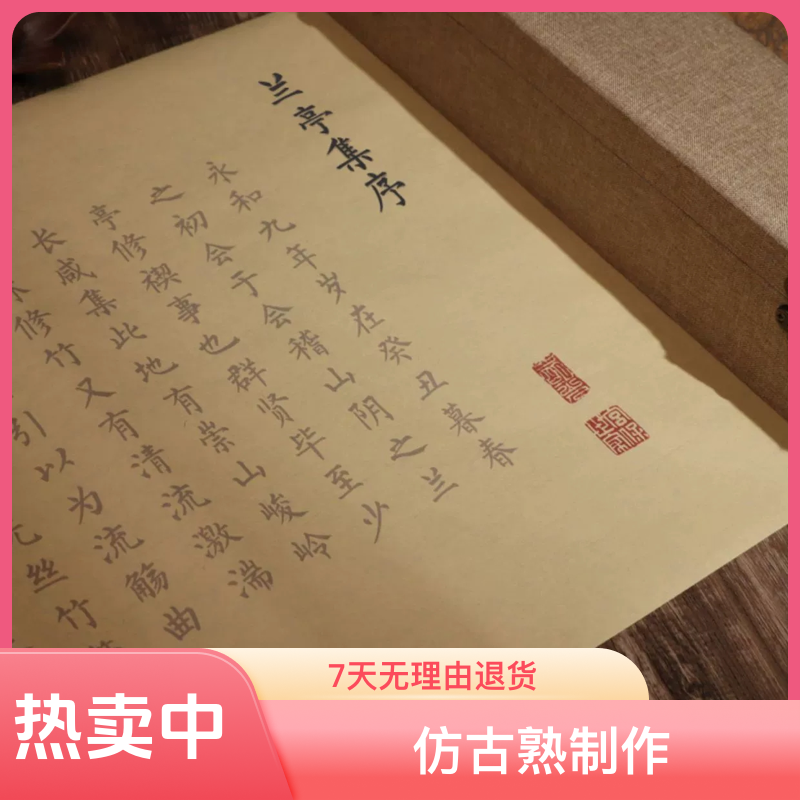 兰亭集序
永和九年岁在癸丑暮春
之初会于会稽山阴之兰
亭修禊事也群贤毕至少
长咸集此地有崇山峻岭
修竹又有清流激湍
引以为流觞曲
丝竹
7天无理由退货
热卖中
仿古熟制作